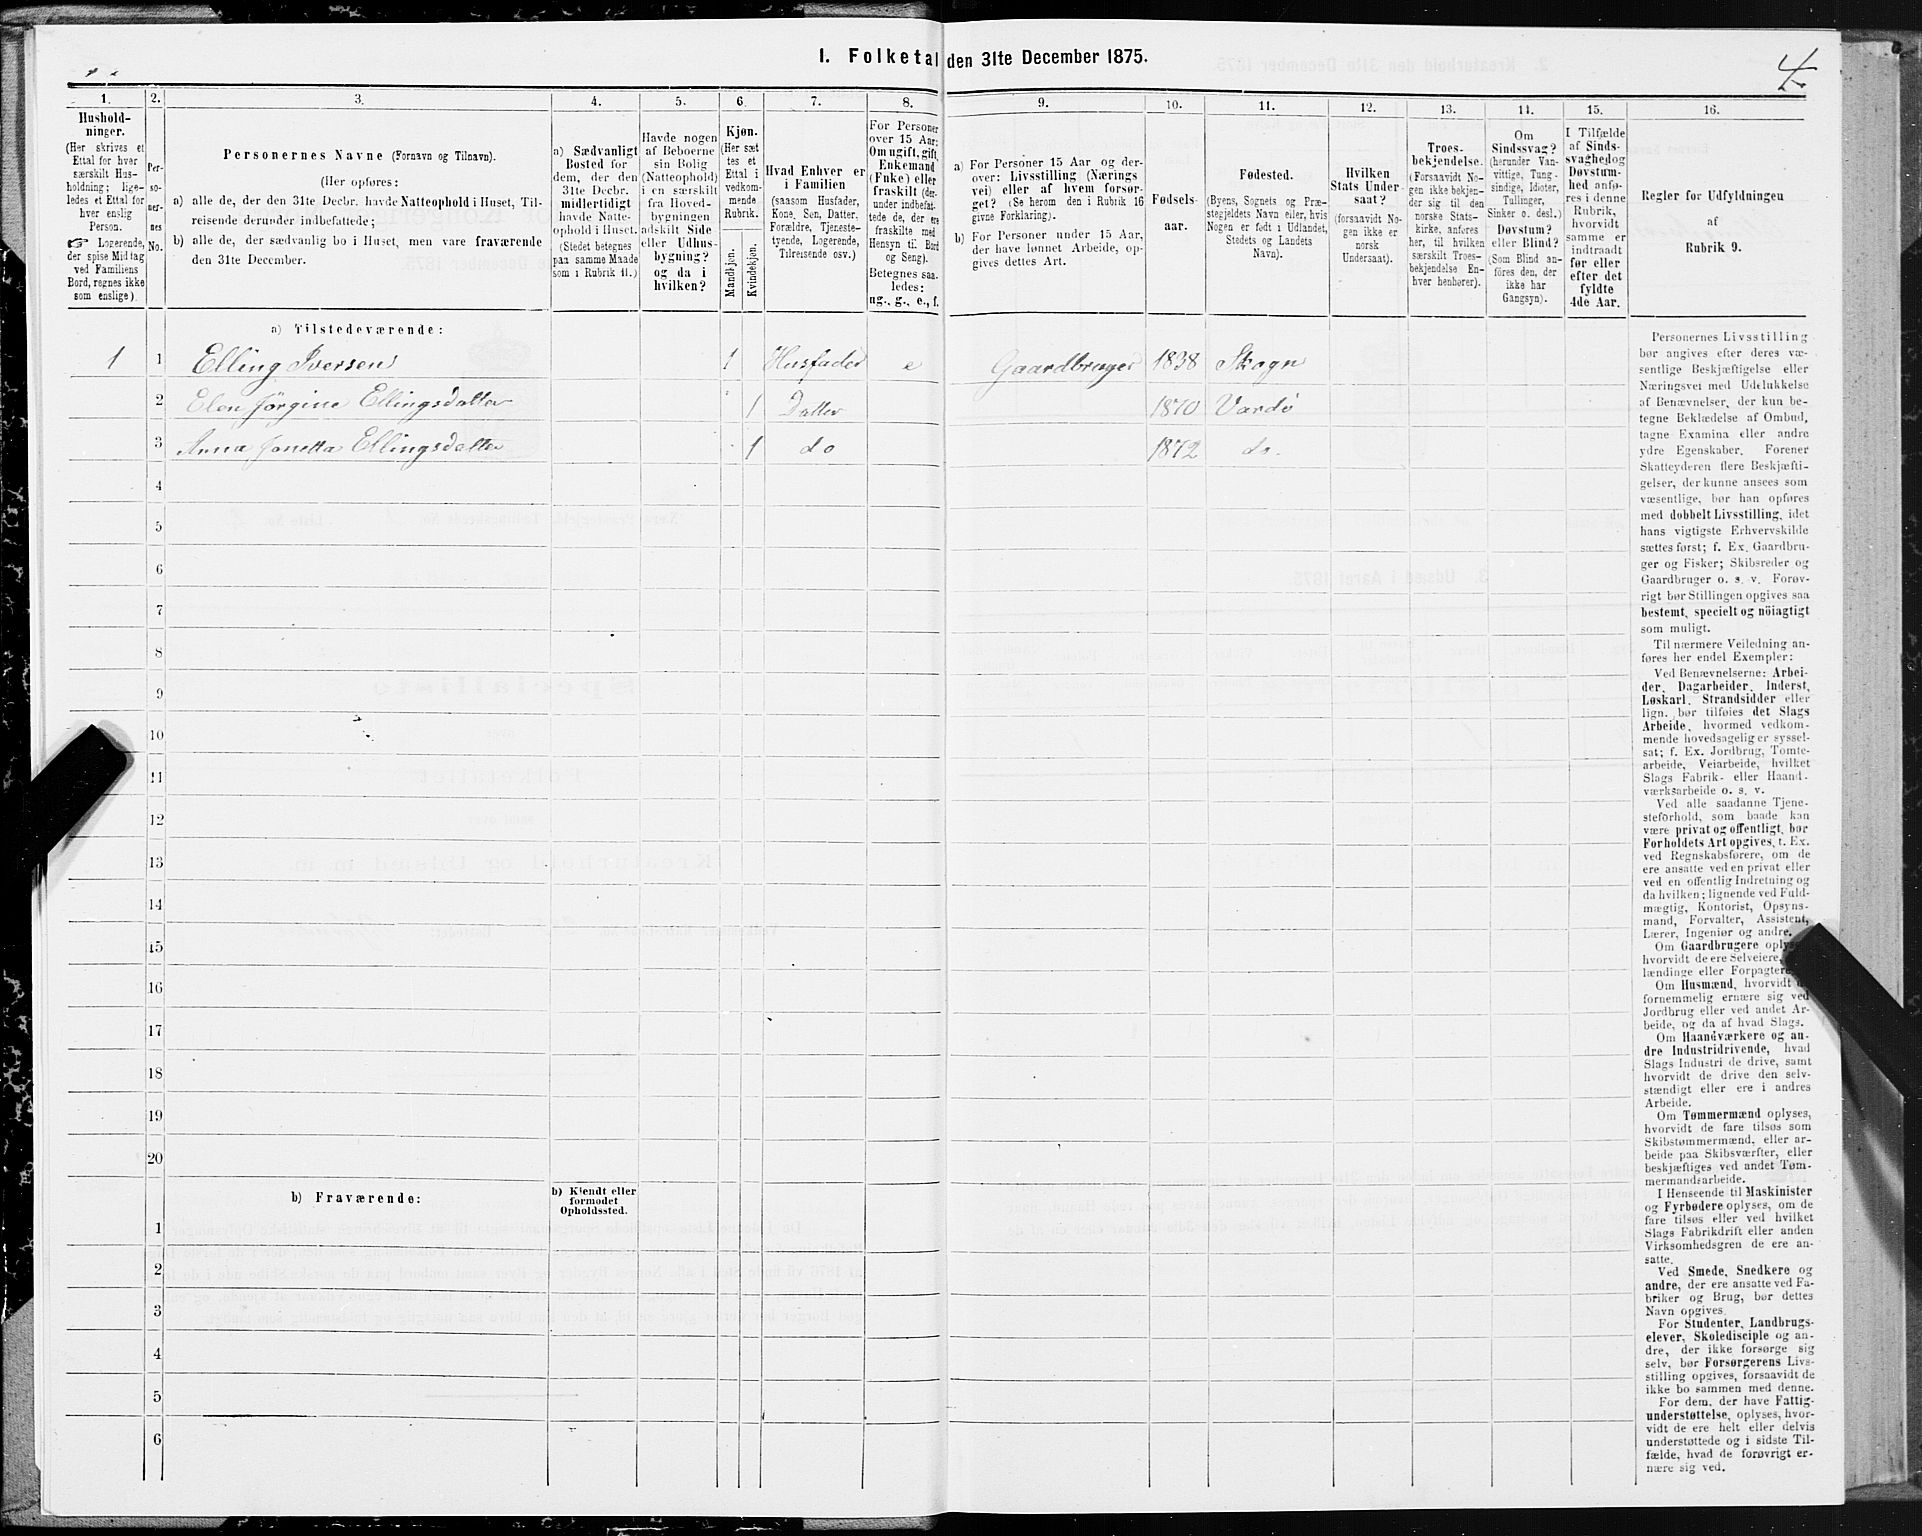 I. Folketal den 31te December 1875.
4
1.
Hushold-
ninger.
(Her skrives et
Ettal for hver
særskilt Hus-
holdning; lige-
ledes et Ettal for
hver enslig
Person.
☞ Logerende,
der spise Middag
ved Familiens
Bord, regnes ikke
som enslige).
2.
Per-
so-
ner-
nes
No.
3.
Personernes Navne (Fornavn og Tilnavn).
(Her opføres:
a) alle de, der den 31te Decbr. havde Natteophold i Huset, Til-
reisende derunder indbefattede;
b) alle de, der sædvanlig bo i Huset, men vare fraværende
den 31te December.
4.
a) Sædvanligt
Bosted for
dem, der den
31te Decbr.
midlertidigt
havde Natte-
ophold i Huset.
(Stedet betegnes
paa samme Maade
som i Rubrik 11.)
5.
Havde nogen
af Beboerne
sin Bolig
(Natteophold)
i en særskilt
fra Hoved-
bygningen
adskilt Side
eller Udhus-
bygning?
og da i
hvilken?
6.
Kjøn.
(Her sæt-
tes et
Ettal i
vedkom-
mende
Rubrik.
Mandkjøn.
Kvindekjøn.
7.
Hvad Enhver er
i Familien
(saasom Husfader,
Kone, Søn, Datter,
Forældre, Tjeneste-
tyende, Logerende,
Tilreisende osv.)
8.
For Personer
over 15 Aar:
Om ugift, gift,
Enkemand
(Enke) eller
fraskilt (der-
under indbefat-
tede de, der ere
fraskilte med
Hensyn til Bord
og Seng).
Betegnes saa-
ledes:
ug., g., e., f.
9.
a) For Personer 15 Aar og der-
over: Livsstilling (Nærings
vei) eller af hvem forsør-
get? (Se herom den i Rubrik 16
givne Forklaring).
b) For Personer under 15 Aar,
der have lønnet Arbeide, op-
gives dettes Art.
10.
Fødsels-
aar.
11.
Fødested.
(Byens, Sognets og Præ-
stegjeldets Navn eller, hvis
Nogen er født i Udlandet,
Stedets og Landets
Navn).
12.
Hvilken
Stats Under-
saat?
(forsaavidt No-
gen ikke er
norsk
Undersaat).
13.
Troes-
bekjendelse.
(Forsaavidt No-
gen ikke bekjen-
der sig til den
norske Stats-
kirke, anføres
her, til hvilken
særskilt Troes-
bekjendelse En-
hver henhører).
14.
Om
Sindssvag?
(herunder Van-
vittige, Tung-
sindige, Idioter,
Tullinger,
Sinker o. desl.)
Døvstum?
eller Blind?
(Som Blind an-
føres den, der
ikke har
Gangsyn).
15.
I Tilfælde
af Sinds-
svaghed og
Døvstum-
hed anfø-
res i denne
Rubrik,
hvorvidt
samme er
indtraadt
før eller
efter det
fyldte
4de Aar.
16.
Regler for Udfyldningen
af
Rubrik 9.
a) Tilstedeværende:
1 1 Elling Iversen 1 Husfader e Gaardbruger 1838 Skogn
2 Elen Jörgine Ellingsdatter 1 Datter 1870 Vardö
3 Anna Jonetta Ellingsdatter 1 do 1872 do.
4
5
6
7
8
9
10
11
12
13
14
15
16
17
18
19
20
b) Fraværende:
b) Kjendt eller
formodet
Opholdssted.
1
2
3
4
5
6
Personernes Livsstilling
bør angives efter deres væ-
sentlige Beskjæftigelse eller
Næringsvei med Udelukkelse
af Benævnelser, der kun be-
tegne Beklædelse af Ombud,
tagne Examina eller andre
ydre Egenskaber. Forener
Skatteyderen flere Beskjæfti-
gelser, der kunne ansees som
væsentlige, bør han opføres
med dobbelt Livsstilling, idet
hans vigtigste Erhvervskilde
sættes først; f. Ex. Gaardbru-
ger og Fisker; Skibsreder og
Gaardbruger o. s. v. Forøv-
rigt bør Stillingen opgives saa
bestemt, specielt og nöiagtigt
som muligt.
Til nærmere Veiledning an-
føres her endel Exempler:
Ved Benævnelserne: Arbei-
der, Dagarbeider, Inderst,
Løskarl, Strandsidder eller
lign. bør tilføies det Slags
Arbeide, hvormed vedkom-
mende hovedsagelig er syssel-
sat; f. Ex. Jordbrug, Tomte-
arbeide, Veiarbeide, hvilket
Slags Fabrik- eller Haand-
værksarbeide o. s. v.
Ved alle saadanne Tjene-
steforhold, som baade kan
være privat og offentligt, bør
Forholdets Art opgives, t. Ex.
ved Regnskabsførere, om de
ere ansatte ved en privat eller
ved en offentlig Indretning og
da hvilken; lignende ved Fuld-
mægtig, Kontorist, Opsyns-
mand, Forvalter, Assistent,
Lærer, Ingeniør og andre.
Om Gaardbrugere oplyses
hvorvidt de ere Selveiere,
lændinge eller Forpagtere
Om Husmænd, hvorvidt
fornemmelig ernære sig ved
Jordbrug eller ved andet Ar-
beide, og da af hvad Slags.
Om Haandværkere og an-
dre Industridrivende, hvad
Slags Industri de drive, samt
hvorvidt de drive den selv-
stændigt eller ere i andres
Arbeide.
Om Tømmermænd oplyses,
hvorvidt de fare tilsøs som
Skibstømmermænd, eller ar-
beide paa Skibsværfter, eller
beskjæftiges ved andet Tøm-
mermandsarbeide.
I Henseende til Maskinister
og Fyrbødere oplyses, om de
fare tilsøs eller ved hvilket
Slags Fabrikdrift eller anden
Virksomhedsgren de ere an-
satte.
Ved Smede, Snedkere og
andre, der ere ansatte ved Fa-
briker og Brug, bør dettes
Navn opgives.
For Studenter, Landbrugs-
elever, Skoledisciple og an-
dre, der ikke forsørge sig
selv, bør Forsørgerens Livs-
stilling opgives, forsaavidt de
ikke bo sammen med denne.
For dem, der have Fattig-
understøttelse, oplyses, hvor-
vidt de ere helt eller delvis
understøttede og i sidste Til-
fælde, hvad de forøvrigt er-
nære sig ved.